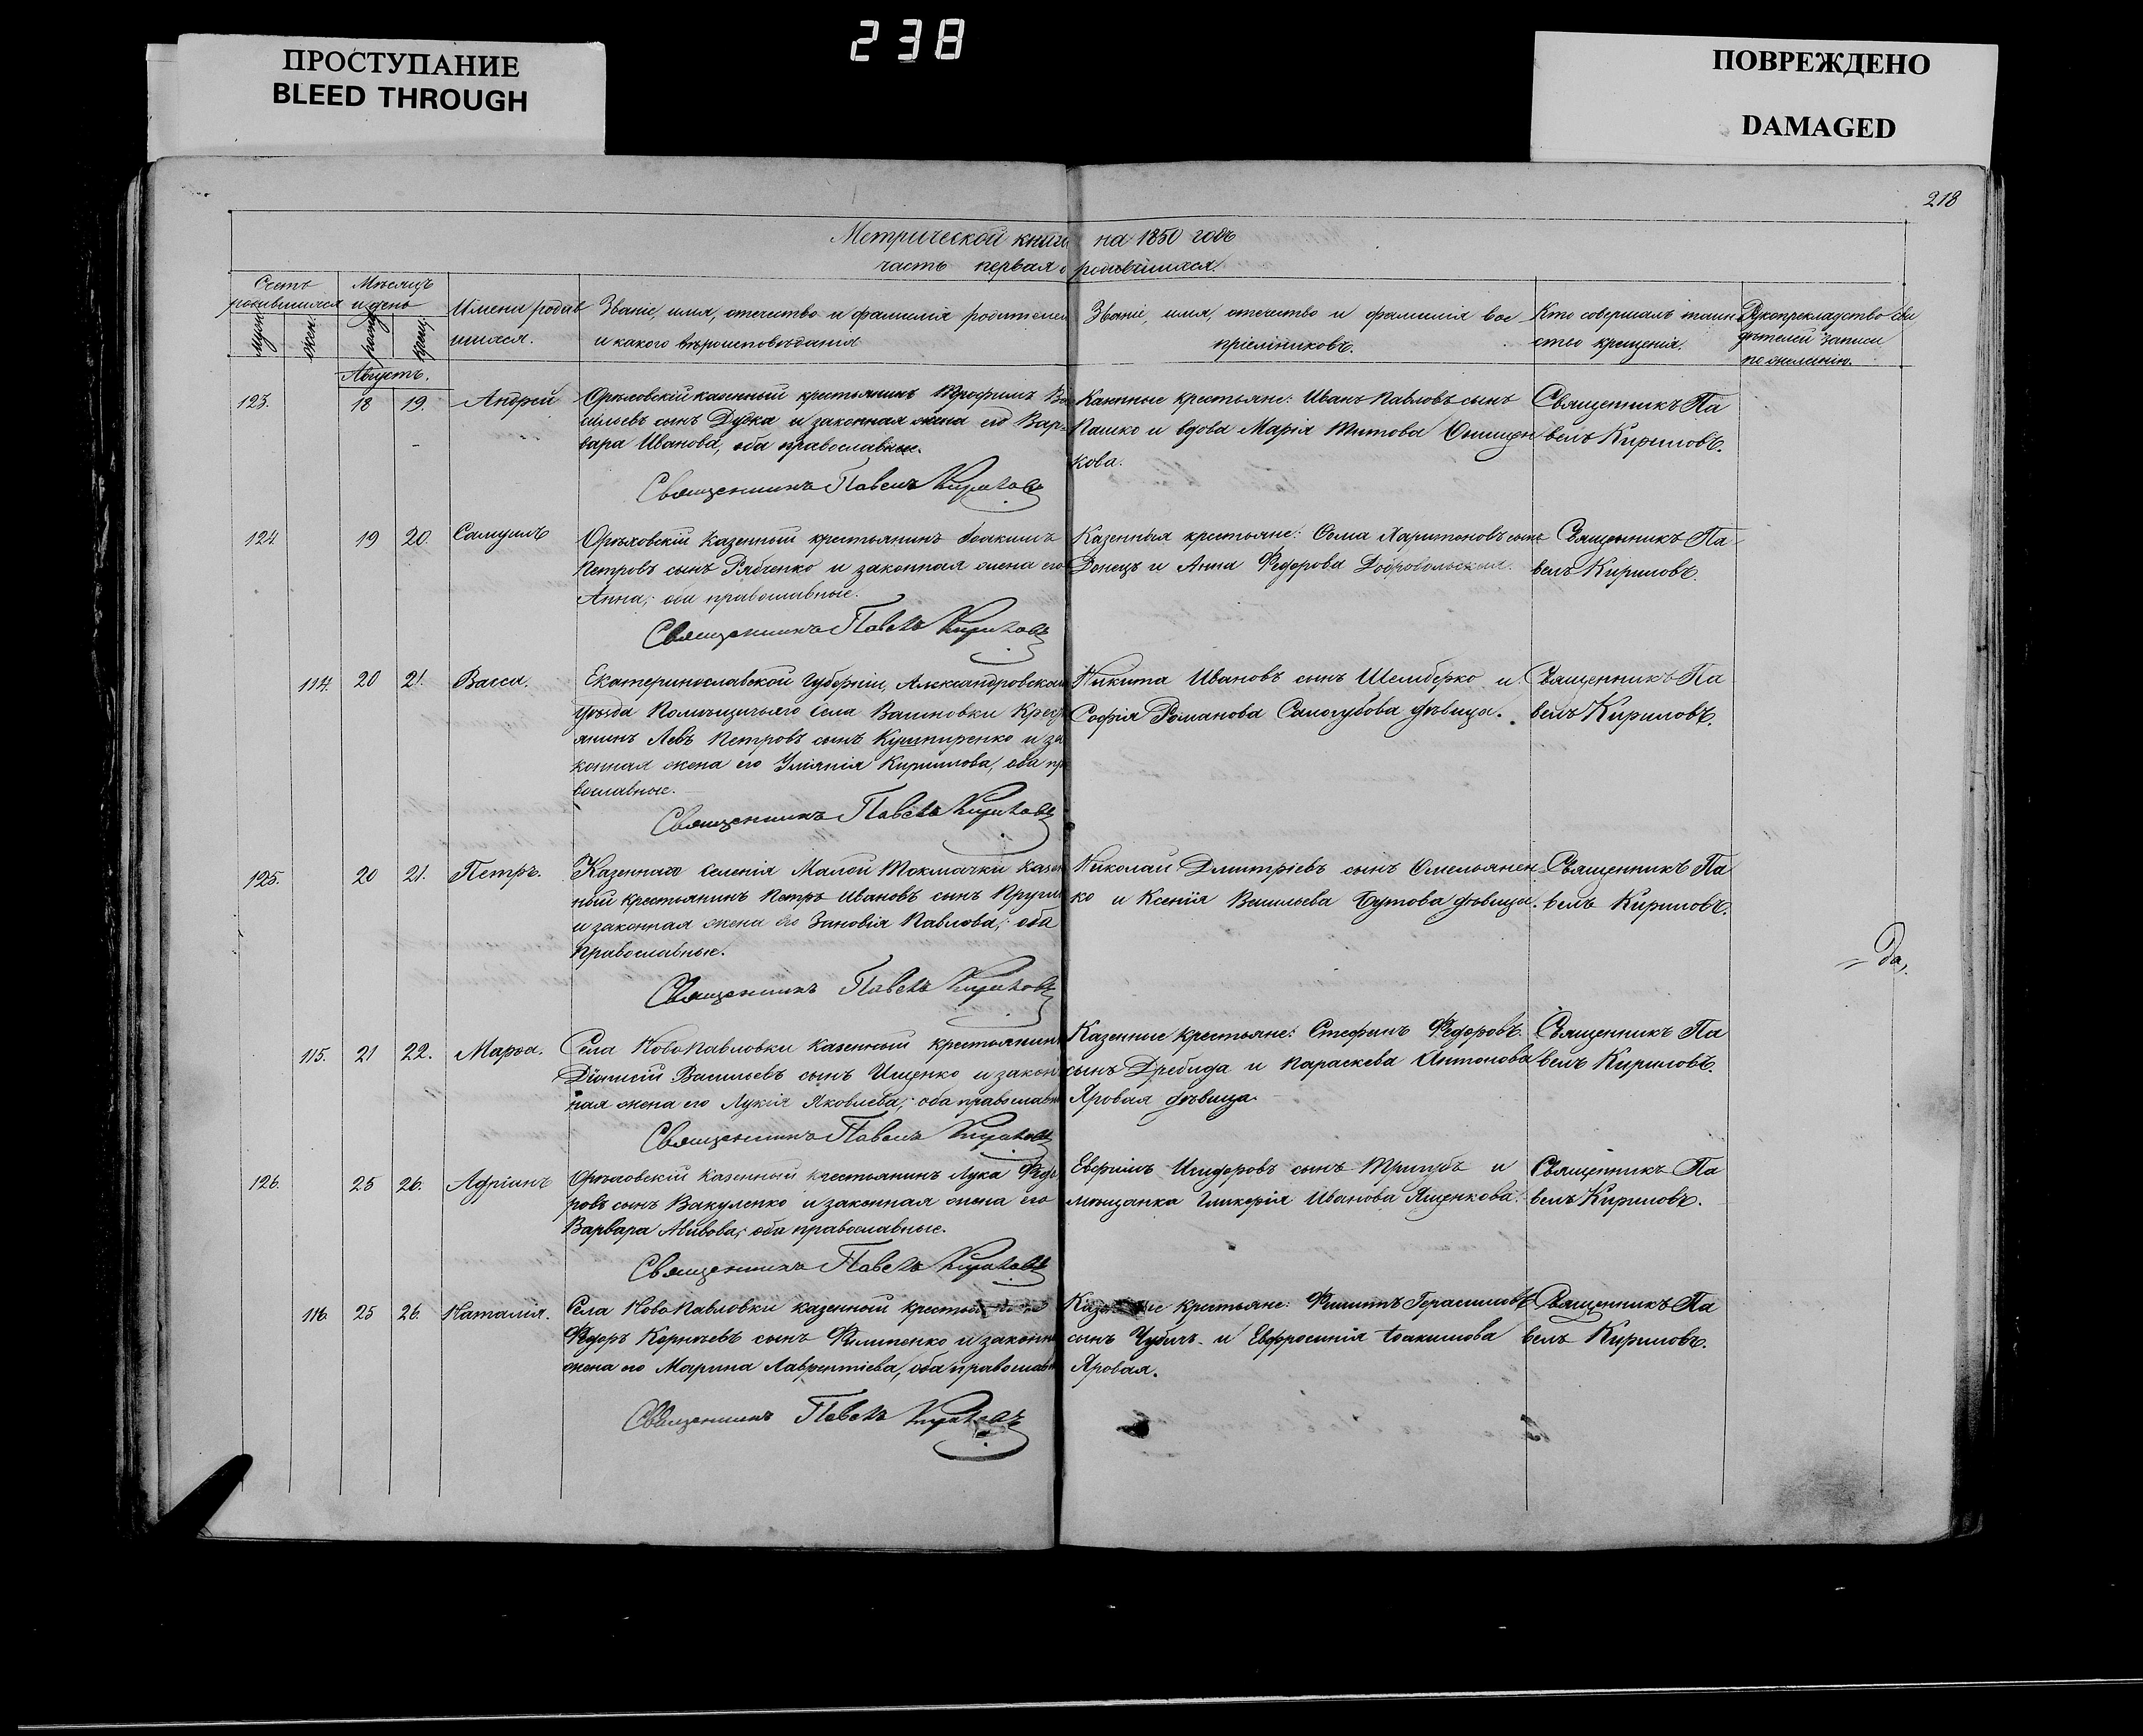 238
ПРОСТУПАНИЕ
BLEED THROUGH
ПОВРЕЖДЕНО
DAMAGED
218
Метрической книги на 1850 годъ
часть первая о родившихся.
Счетъ родившихся
Мѣсяцъ и день
муж.
жен.
рожд.
крещ.
Имена родив
шихся.
Званіе, имя, отечество и фамилія родителей
и какого вѣроисповѣданія
Званіе, имя, отечество и фамилія вос
пріемниковъ.
Кто совершалъ таин
ство крещенія.
Рукоприкладство сви
дѣтелей записи
по желанію.
Августъ.
123. 18 19. Андрей
Орѣховскій казенный крестьянинъ Трофимъ Ва
сильевъ сынъ Дудка и законная жена его Вар-
вара Иванова, оба православные.
Священникъ Павелъ Кириловъ
Иванъ Павловъ сынъ
Пашко и вдова Марія Титова
кова.
Священникъ Па
велъ Кириловъ.
124. 19 20. Самуилъ
Орѣховскій казенный крестьянинъ Іоакимъ
Петровъ сынъ Рябченко и законная жена его
Анна; оба православные.
Священникъ Павелъ Кириловъ
Казенныя крестьяне: Ѳома Харитоновъ сынъ
Донецъ и Анна Федорова Добровольская.
Священникъ Па-
велъ Кириловъ.
114. 20 21. Васса.
Екатеринославской Губерніи, Александровскаго
уѣзда Помѣщичьяго села Крест
янинъ Левъ Петровъ сынъ Кушниренко и за
конная жена его Кириллова, оба пра
вославные.
Священникъ Павелъ Кириловъ
Никита Ивановъ сынъ Шемберко и
Софія Романова Самогубова дѣвица.
Священникъ Па
велъ Кириловъ.
125. 20 21. Петръ.
Казеннаго селенія Малой Токмачки казен
ный крестьянинъ Петръ Ивановъ сынъ
и законная жена его Зановія Павлова; оба
православные.
Священникъ Павелъ Кириловъ
Николай Дмитріевъ сынъ Омельянен
ко и Ксенія Васильева Бутова дѣвица.
Священникъ Па
велъ Кириловъ.
115. 21 22. Марѳа.
Села НовоПавловки казенный крестьянинъ
Діонисій Васильевъ сынъ Ищенко и закон
ная жена его Лукія Яковлева; оба православн
Священникъ Павелъ Кириловъ
Казенные крестьяне: Стефанъ Федоровъ
сынъ Дребида и Параскева Антонова
Яровая дѣвица.
Священникъ Па
велъ Кириловъ.
126. 25 26. Адріанъ
Орѣховскій казенный крестьянинъ Лука Федо
ровъ сынъ Вакуленко и законная жена его
Варвара Авивова; оба православные.
Священникъ Павелъ Кириловъ
Евфимъ сынъ Тригубъ и
мѣщанка Гликерія Иванова Ященкова.
Священникъ Па
велъ Кириловъ.
116. 25 26. Наталія.
Села НовоПавловки казенный
Федоръ сынъ Филипенко и законн
жена его Марина Лаврентіева, оба православн
Священникъ Павелъ Кириловъ
крестьяне: Филиппъ Герасимовъ
сынъ и Евфросинія Іоакимова
Яровая.
Священникъ Па
велъ Кириловъ.